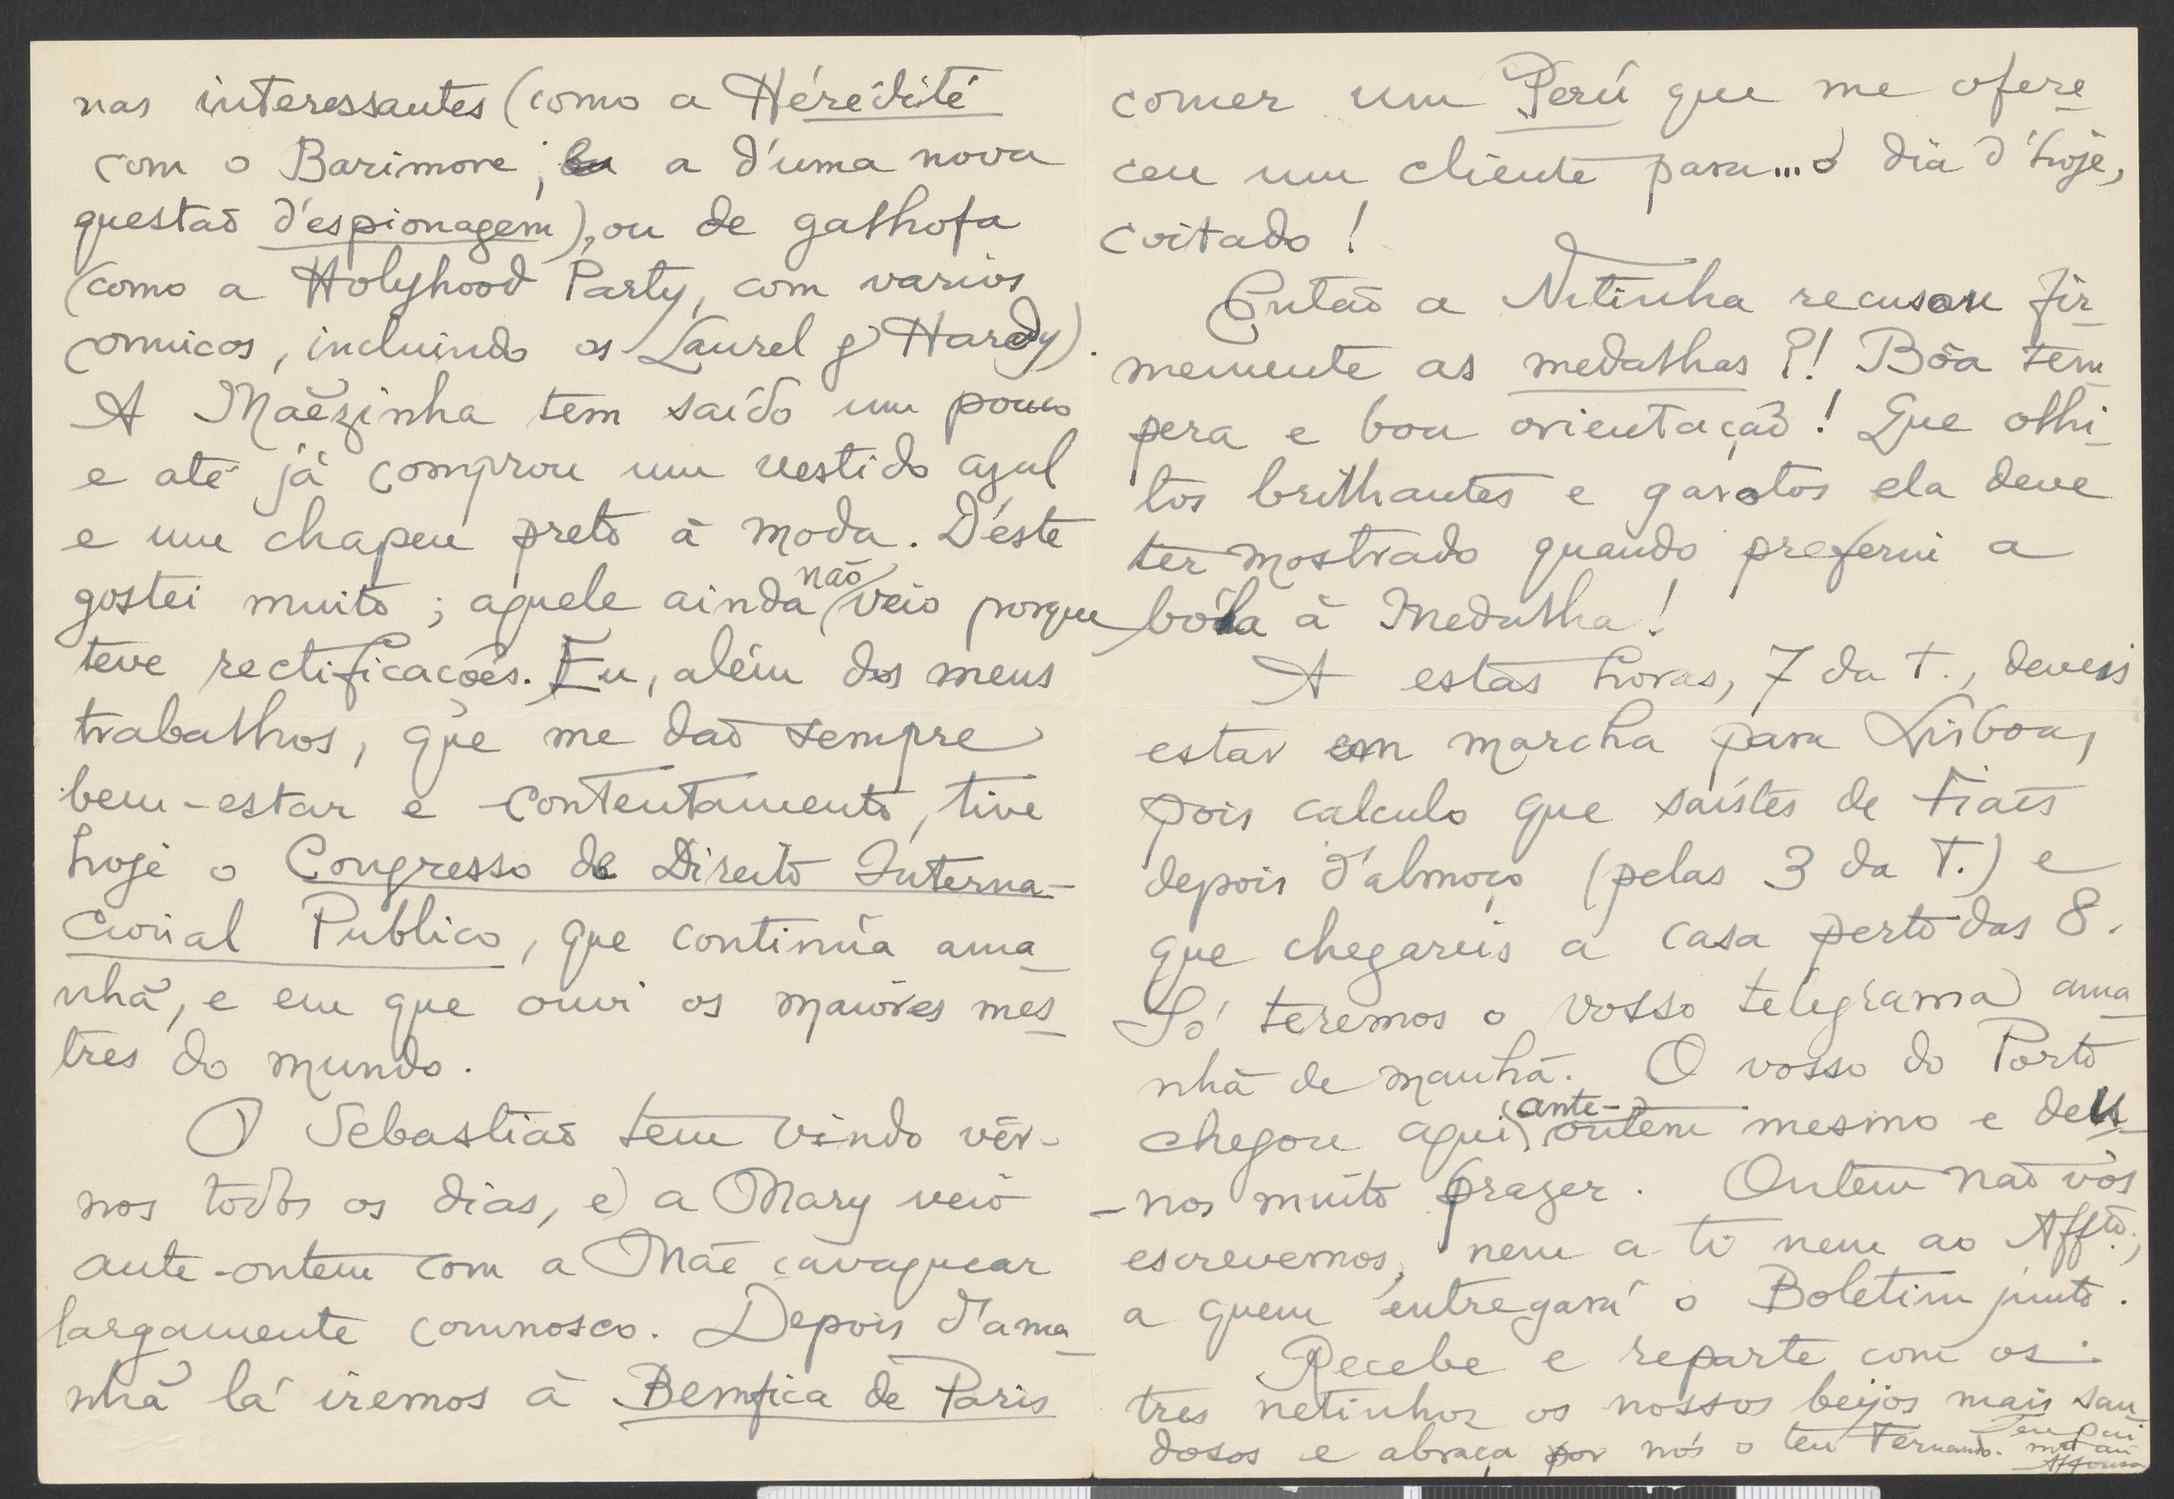 nas interessantes (como a Hérédité
com o Barimore; a d'uma nova
questaõ d'espionagem), ou de galhofa
(como a Holyhood Party, com varios
comicos, incluindo os Laurel & Hardy).
A Maẽzinha tem saído um pouco
e até já comprou um vestido azul
e um chapeu preto à moda. D'éste
gostei muito; aquele ainda não veio porque
teve rectificacões. Eu, além dos meus
trabalhos, que me daõ sempre
bem-estar e contentamento, tive
hoje o Congresso de Direito Interna-
cional Publico, que continúa ama-
nhã, e em que ouvi os maiores mes-
tres do mundo.
O Sebastiaõ tem vindo vêr-
nos todos os dias, e a Mary veio
ante-ontem com a Mãe cavaquear
largamente comnosco. Depois d'ama-
nhã lá iremos à Bemfica de Paris
comer um Perú que me ofere-
ceu um cliente para... o dia d'hoje,
coitado!
Entaõ a Netinha recusou fir-
memente as medalhas?! Bôa tem-
pera e boa orientaçaõ! Que olhi-
tos brilhantes e garotos ela deve
ter mostrado quando preferiu a
bóla à Medalha!
A estas horas, 7 da t., deveis
estar em marcha para Lisboa,
pois calculo que saístes de Fiaẽs
depois d'almoço (pelas 3 da T.) e
que chegareis a casa perto das 8.
Só teremos o vosso telegrama ama-
nhã de manhã. O vosso do Porto
chegou aqui (ante-) ontem mesmo e deu-
-nos muito prazer. Ontem naõ vos
escrevemos, nem a ti nem ao Affto.,
a quem entregará o Boletim junto.
Recebe e reparte com os
tres netinhos os nossos beijos mais sau-
dosos e abraça por nós o teu Fernando. Teu pai
Affonso